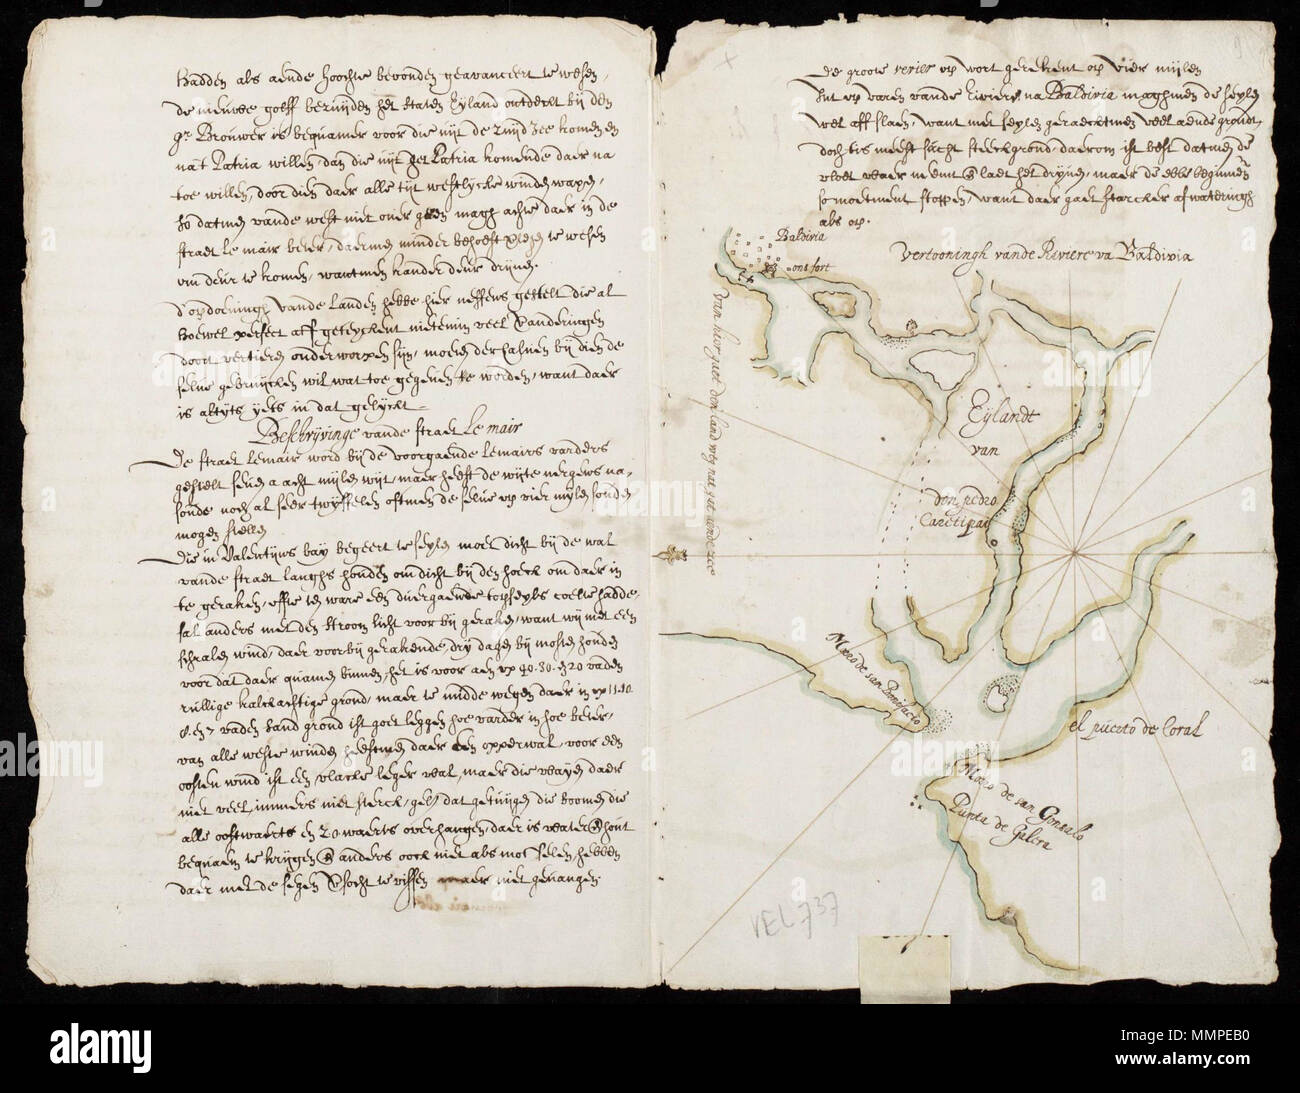 hadden als aende hoochte bevonden geavanceert te wesen,
de nieuwe golff bezuijden het Staten Eyland ontdeckt bij den
gr Brouwer is bequamer voor die uijt de zuijd zee komen en
nat Patria willen dan die uijt het Patria komende daer na
toe willen, door dien daer alle tijt westlycke winden wayen,
so datmen vande west niet over geen magh achte daer in de
straet le mair beter, daermen minder behoeft te wesen
om deur te komen, wantmen kander deur dryven.
d'opdoeningh vande landen hebbe hier neffens gestelt die al
hoewel perfect aff geteyckent nietemin veel veranderingen
door verlieren onderworpen sijn, moeten der halven bij dien de
selve gebruycken wil wat toe gegeven te worden, want daer
is altyts yets in dat gelyckt
Beschryvinge vande straet Le mair
De straet Lemair word bij de voorgaende Lemairs vaerders
gestelt seven a acht mylen wyt, maer heeft de wyte nergens na
soude noch al seer twyffelen oftmen de selve op vier mylen soude
mogen stellen
Die in Valentijns bay begeert te seylen moet dicht bij de wal
vande straet langhs houden om dicht bij den hoeck om daer in
te geraken, offte ten ware een doergaende topseyls coelte hadde
sal anders met den stroom licht voor bij geraken, want wij met een
schralen wind, daer voorbij gerakende dry dagen bij mosten houden
voor dat daer quamen binnen, het is voor aen op 40. 30. en 20 vadem
rullige kalckachtige grond, maer te midde wegen daer in op 11. 10
8. en 7 vadem sand grond ist goet leggen hoe varder in hoe beter,
van alle weste winden heeftmen daer een opperwal, voor een
oosten wind ist een vlacke leger wal, maer die wayen daer
niet veel, immers niet sterck, gelyc dat getuygen die boomen die
alle oostwaerts en zo waerts overhangen, daer is water & hout
bequaem te krygen & anders oock niet als mosselen, hebben
daer met de segen visch te vissen maer niet gevangen
De groote revier op wort gerekent op vier mylen
Int op varen vande Riviere na Baldivia maghmen de seylen
wel aff slaen, want met seylen geraecktmen veel aende grondt,
doch tis meest sacht steeckgrond, daerom ist best datmen de
vloet waer neemt & laet het dryven, maer de ebbe beginnen
so moetment stoppen, want daer gaet stercker afwateringh
als op.
Vertooningh vande Riviere va Baldivia
Baldivia
ont fort
van hier gaet don land weg nat gat ande zee
Eylandt
van
don pedro
Caretipai
Moro de san Bonifacio
el puerto de Coral
Moro de san Gonsalo
Punta de Galera
VEL 737
9
alamy stock photo
alamy
Image ID: MMPEB0
www.alamy.com